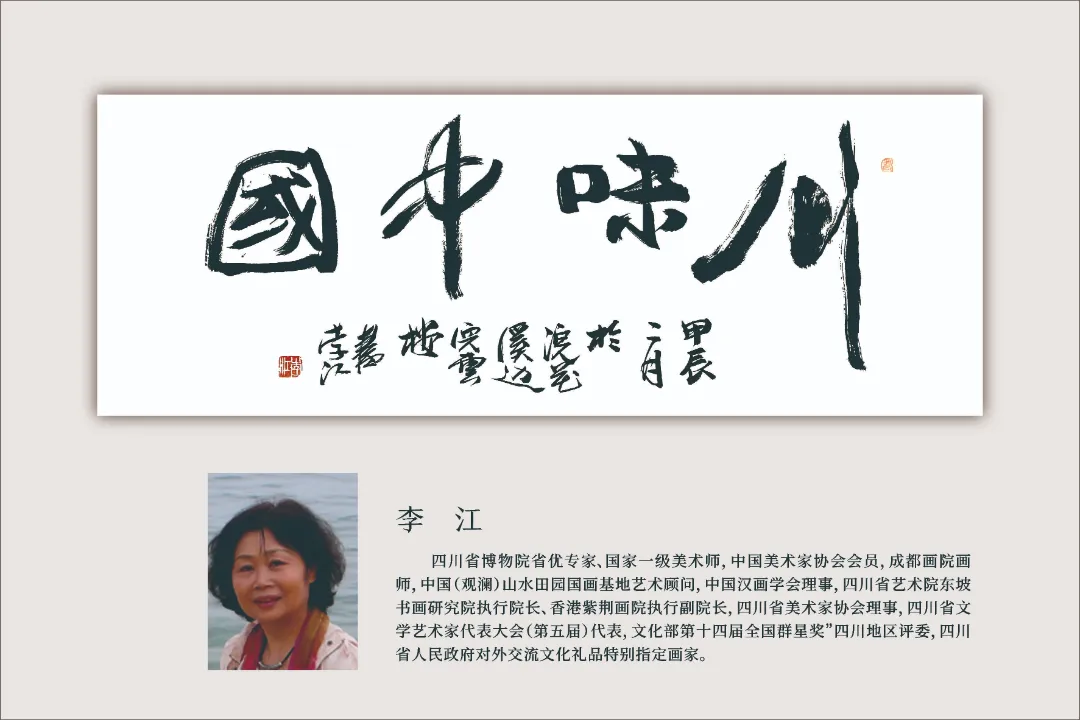 川味中國
甲辰
二月
於
浣花
溪边
雲
楼
李江
李　江
四川省博物院省优专家、国家一级美术师，中国美术家协会会员，成都画院画
师，中国（观澜）山水田园国画基地艺术顾问，中国汉画学会理事，四川省艺术院东坡
书画研究院执行院长、香港紫荆画院执行副院长，四川省美术家协会理事，四川省文
学艺术家代表大会（第五届）代表，文化部第十四届全国群星奖”四川地区评委，四川
省人民政府对外交流文化礼品特别指定画家。